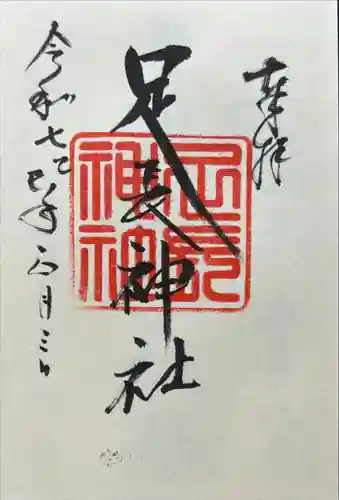 奉拝
足長神社
足長神社
令和七乙巳年六月三日